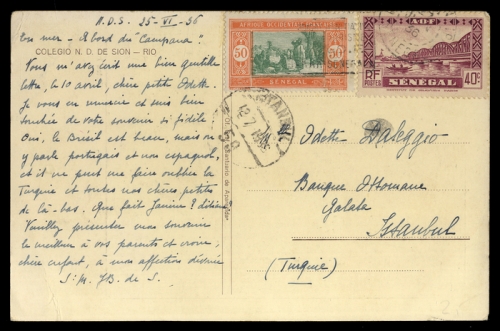 N. D. S. 25-VI-36
En mer - A bord du "Campana"
COLEGIO N. D. DE SION - RIO
Vous m'avez écrit une bien gentille
lettre, le 10 avril, chère petite Odette.
Je vous en remercie et suis bien
touchée de votre souvenir si fidèle!
Oui, le Brésil est beau, mais on
y parle portugais et non espagnol,
et il ne peut me faire oublier la
Turquie et toutes nos chères petites
de là-bas. Que fait Janine?
Veuillez présenter mon souvenir
le meilleur à vos parents et croire,
chère enfant, à mon affection dévouée
S. M. J. B. de S.
AFRIQUE OCCIDENTALE FRANÇAISE
50 50
SÉNÉGAL
AOF
RF POSTES SÉNÉGAL 40c
ISTANBUL
Odette Daleggio
Banque Ottomane
Galata
Istanbul
(Turquie)